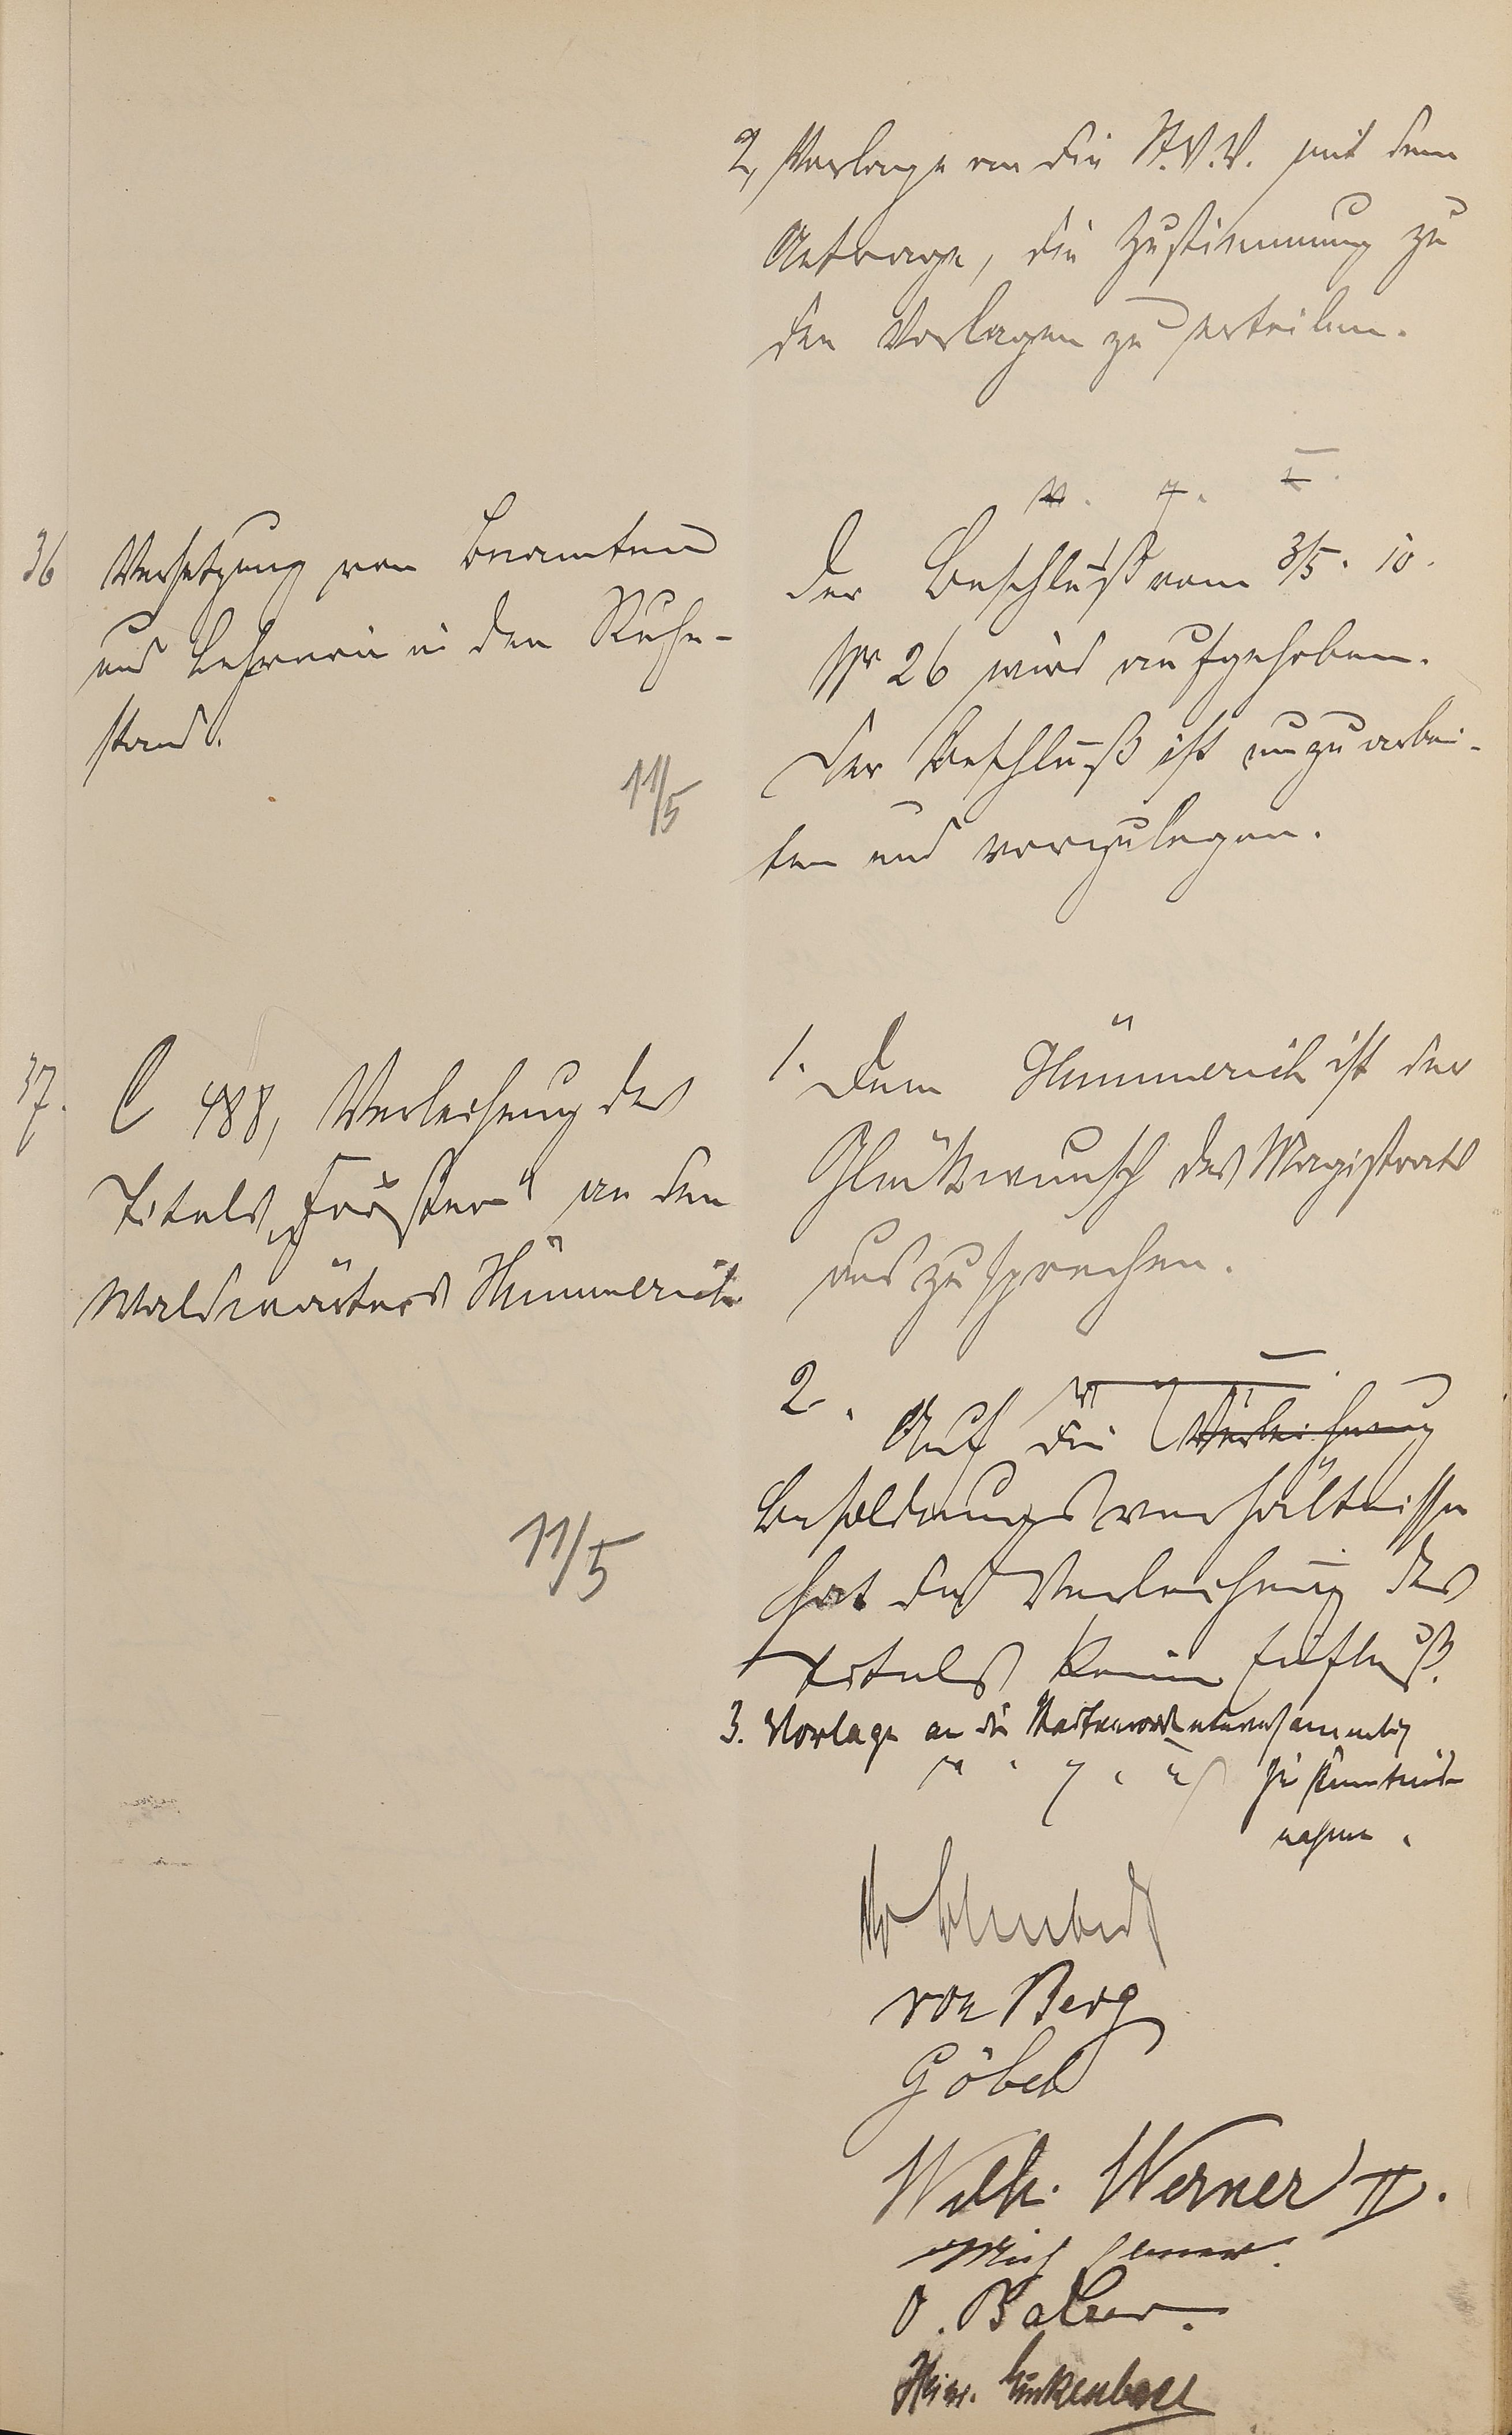 2, Vorlage an die St.V.V. mit dem
Antrage, die Zustimmung zu
den Vorlagen zu erteilen.
v. g. u.
36 Versetzung von Beamten
und Lehrern in den Ruhe-
stand.
11/5
Der Beschluß vom 3/5. 10.
Nr 26 wird aufgehoben.
Der Beschluß ist umzuarbei-
ten und vorzulegen.
37. C 488, Verleihung des
Titels „Förster“ an den
Waldwärters Hümmerich
11/5
1. Dem Hümmerich ist der
Glückwunsch des Magistrats
auszusprechen.
2. Auf die Verleihung
Besoldungsverhältnisse
hat das Verleihung des
Titels keinen Einfluß.
3. Vorlage an die Stadtverordnetenversammlung
v. g. u. zu Kenntnis-
nahme.
von Berg
Göbel
Wilh. Werner II.
O. Balser.
Heinr.